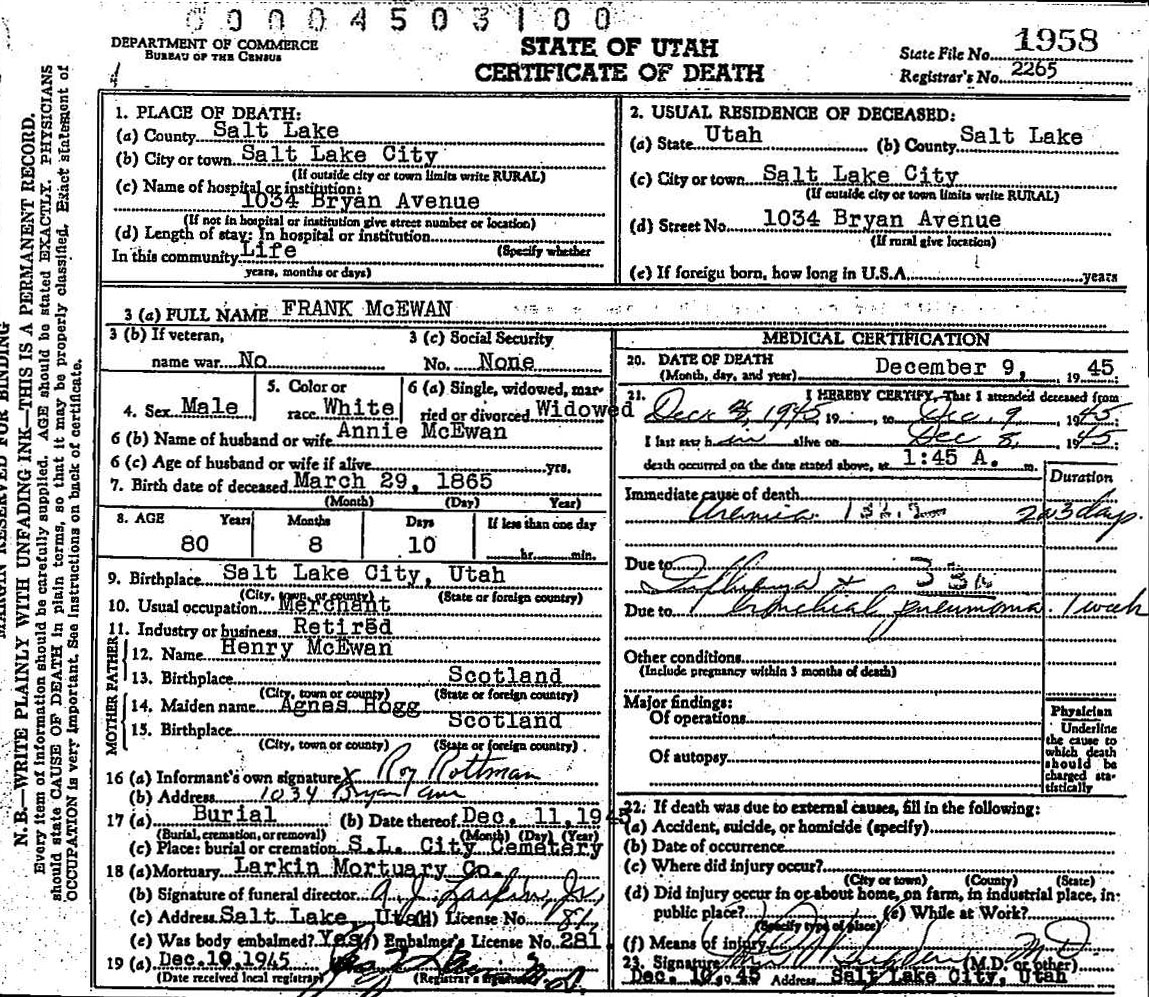 0 0 0 0 4 5 0 3 1 0 0
DEPARTMENT OF COMMERCE
BUREAU OF THE CENSUS
STATE OF UTAH
CERTIFICATE OF DEATH
State File No. 1958
Registrar's No. 2265
MARGIN RESERVED FOR BINDING
N. B.—WRITE PLAINLY WITH UNFADING INK—THIS IS A PERMANENT RECORD.
Every item of information should be carefully supplied. AGE should be stated EXACTLY. PHYSICIANS
should state CAUSE OF DEATH in plain terms, so that it may be properly classified. Exact statement of
OCCUPATION is very important. See instructions on back of certificate.
1. PLACE OF DEATH:
(a) County Salt Lake
(b) City or town Salt Lake City
(If outside city or town limits write RURAL)
(c) Name of hospital or institution:
1034 Bryan Avenue
(If not in hospital or institution give street number or location)
(d) Length of stay: In hospital or institution
(Specify whether
In this community Life
years, months or days)
2. USUAL RESIDENCE OF DECEASED:
(a) State Utah (b) County Salt Lake
(c) City or town Salt Lake City
(If outside city or town limits write RURAL)
(d) Street No. 1034 Bryan Avenue
(If rural give location)
(e) If foreign born, how long in U.S.A. years
3 (a) FULL NAME FRANK McEWAN
3 (b) If veteran,
name war No
3 (c) Social Security
No. None
4. Sex Male
5. Color or
race White
6 (a) Single, widowed, mar-
ried or divorced Widowed
6 (b) Name of husband or wife Annie McEwan
6 (c) Age of husband or wife if alive yrs.
7. Birth date of deceased March 29, 1865
(Month) (Day) Year)
8. AGE Years Months Days If less than one day
80 8 10 hr. min.
9. Birthplace Salt Lake City, Utah
(City, town, or county) (State or foreign country)
10. Usual occupation Merchant
11. Industry or business Retired
FATHER
12. Name Henry McEwan
13. Birthplace Scotland
(City, town or county) (State or foreign country)
MOTHER
14. Maiden name Agnes Hogg
15. Birthplace Scotland
(City, town or county) (State or foreign country)
16 (a) Informant's own signature X Roy Rottman
(b) Address 1034 Bryan Ave
17 (a) Burial (b) Date thereof Dec. 11, 1945
(Burial, cremation, or removal) (Month) (Day) (Year)
(c) Place: burial or cremation S.L. City Cemetery
18 (a) Mortuary Larkin Mortuary Co.
(b) Signature of funeral director A. J. Larkin, Jr.
(c) Address Salt Lake, Utah (d) License No. 81
(e) Was body embalmed? Yes (f) Embalmer's License No. 281
19 (a) Dec. 10, 1945
(Date received local registrar) (Registrar's signature)
MEDICAL CERTIFICATION
20. DATE OF DEATH December 9, 19 45
(Month, day, and year)
21. I HEREBY CERTIFY, That I attended deceased from
1945, 19 , to Dec. 9 , 1945
I last saw h im alive on Dec 8, 1945
death occurred on the date stated above, at 1:45 A. m.
Duration
Immediate cause of death
Uremia 2 or 3 days.
Due to 33a
Influenza &
Due to bronchial pneumonia. 1 week
Other conditions
(Include pregnancy within 3 months of death)
Major findings:
Of operations
Of autopsy
Physician
Underline
the cause to
which death
should be
charged sta-
tistically
22. If death was due to external causes, fill in the following:
(a) Accident, suicide, or homicide (specify)
(b) Date of occurrence
(c) Where did injury occur?
(City or town) (County) (State)
(d) Did injury occur in or about home, on farm, in industrial place, in
public place? (e) While at Work?
(Specify type of place)
(f) Means of injury
23. Signature M D
(M.D. or other)
Dec. 10, 45 Address Salt Lake City, Utah